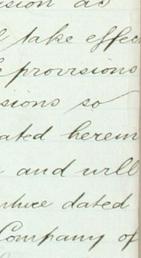 ision as
l take effec
e provisions
sions so
ated herein
and will
dated
Company of